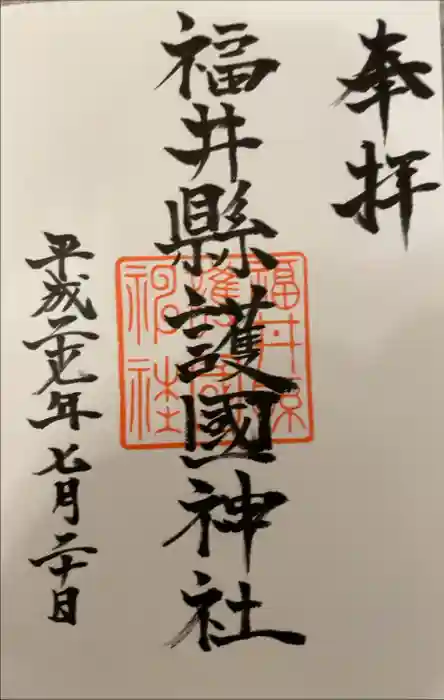 奉拝
福井縣護國神社
平成二十七年七月二十日
福井縣
護國
神社